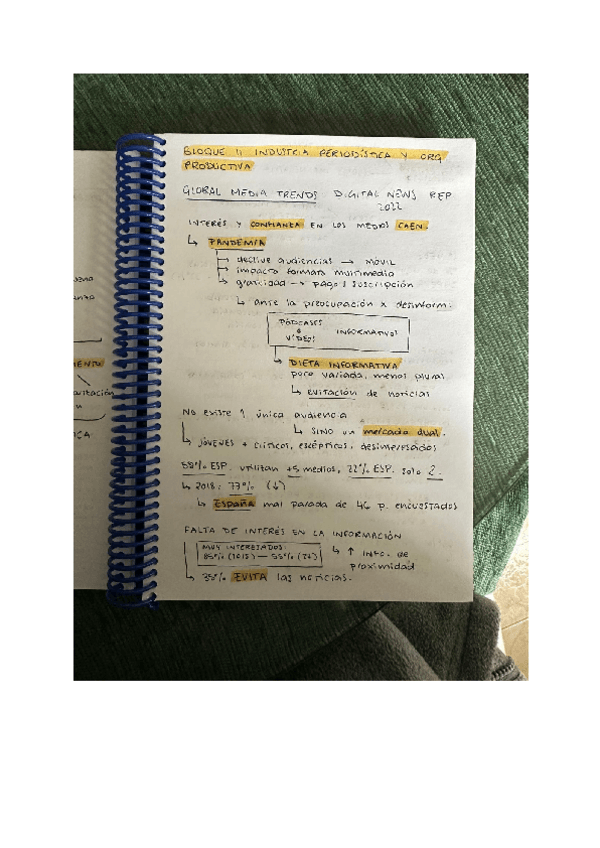 BLOQUE 1: INDUSTRIA PERIODÍSTICA Y ORG
PRODUCTIVA
GLOBAL MEDIA TRENDS DIGITAL NEWS REP
2022
INTERÉS Y CONFIANZA EN LOS MEDIOS CAEN.
↳ PANDEMIA
declive audiencias → MÓVIL
impacto formato multimedia
gratuidad → pagos suscripción
↳ Ante la preocupación x desinform.
PÓDCASES
&
VÍDEOS
INFORMATIVOS
↳ DIETA INFORMATIVA
poco variada, menos plural
↳ evitación de noticias
No existe 1 única audiencia
↳ SINO un mercado dual.
↳ JÓVENES + críticos, escépticos, desinteresados
58% ESP. utilizan +5 medios, 22% ESP. solo 2.
↳ 2018: 77% (↓)
↳ España mal parada de 46 p. encuestados
FALTA DE INTERÉS EN LA INFORMACIÓN
MUY INTERESADOS:
85% (2015) — 55% (22)
↳ ↑ info. de
proximidad
↳ 35% EVITA las noticias.
MENTO